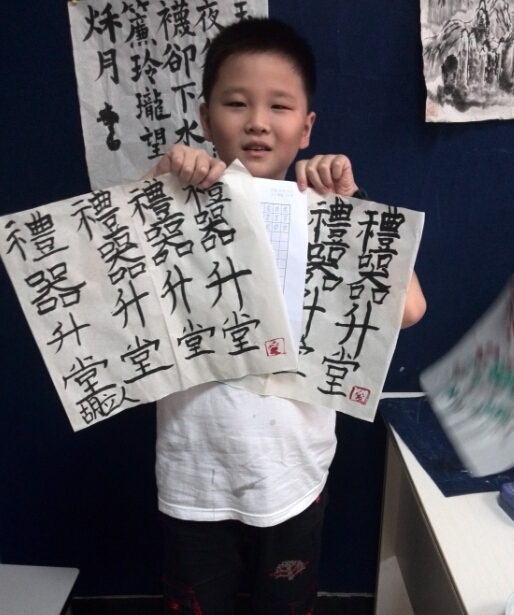 夜
襪卻下水
簾玲瓏望
秌月
禮器升堂
禮器升堂
禮器升堂
禮器升堂
禮器升堂
禮器升堂
胡立人